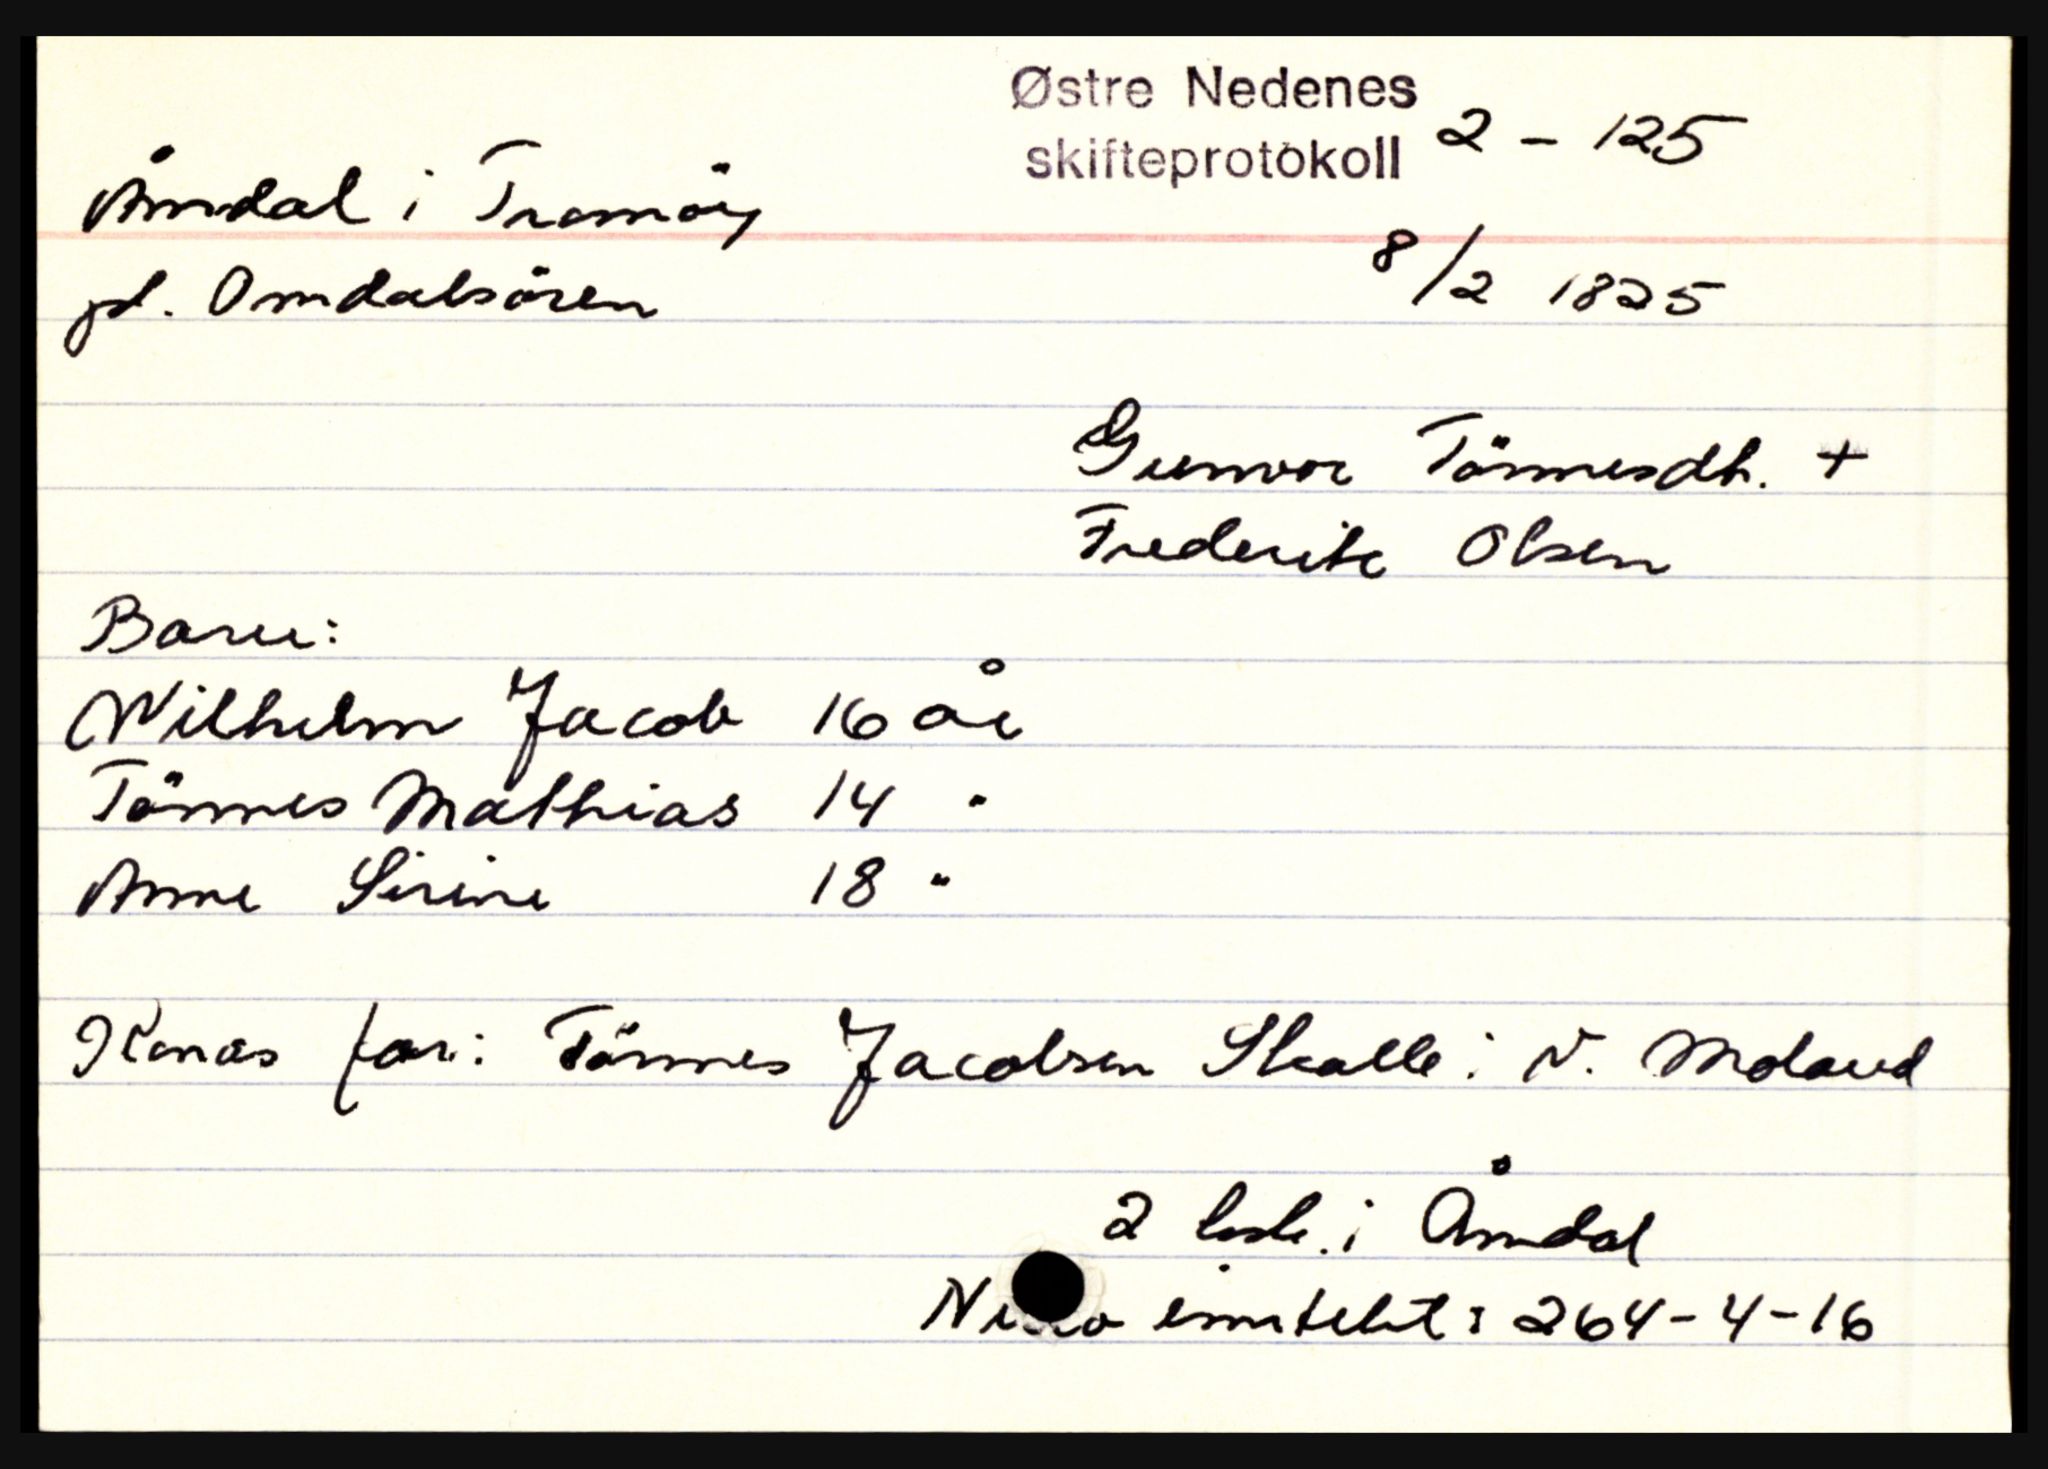 Østre Nedenes
skifteprotokoll 2 - 125
Åmdal i Tromöy
pl. Omdalsören
8/2 1825
Gunvor Tönnesdh. +
Frederik Olsen
Barn:
Wilhelm Jacob 16 år
Tönnes Mathias 14 "
Anne Sirine 18 "
Konas far: Tönnes Jacobsen Skalle i N. Moland
2 besk. i Åmdal
inntekt: 264-4-16